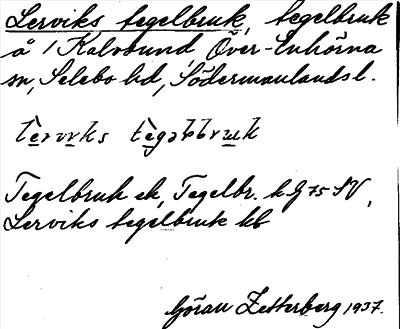 Lerviks tegelbruk, tegelbruk
å 1 Kalvbund, Över-Enhörna
sn, Selebo hd, Södermanlands l.
lerviks tegəlbruk
Tegelbruk ek, Tegelbr. k G 75 SV,
Lerviks tegelbruk hb
Göran Zetterberg 1937.